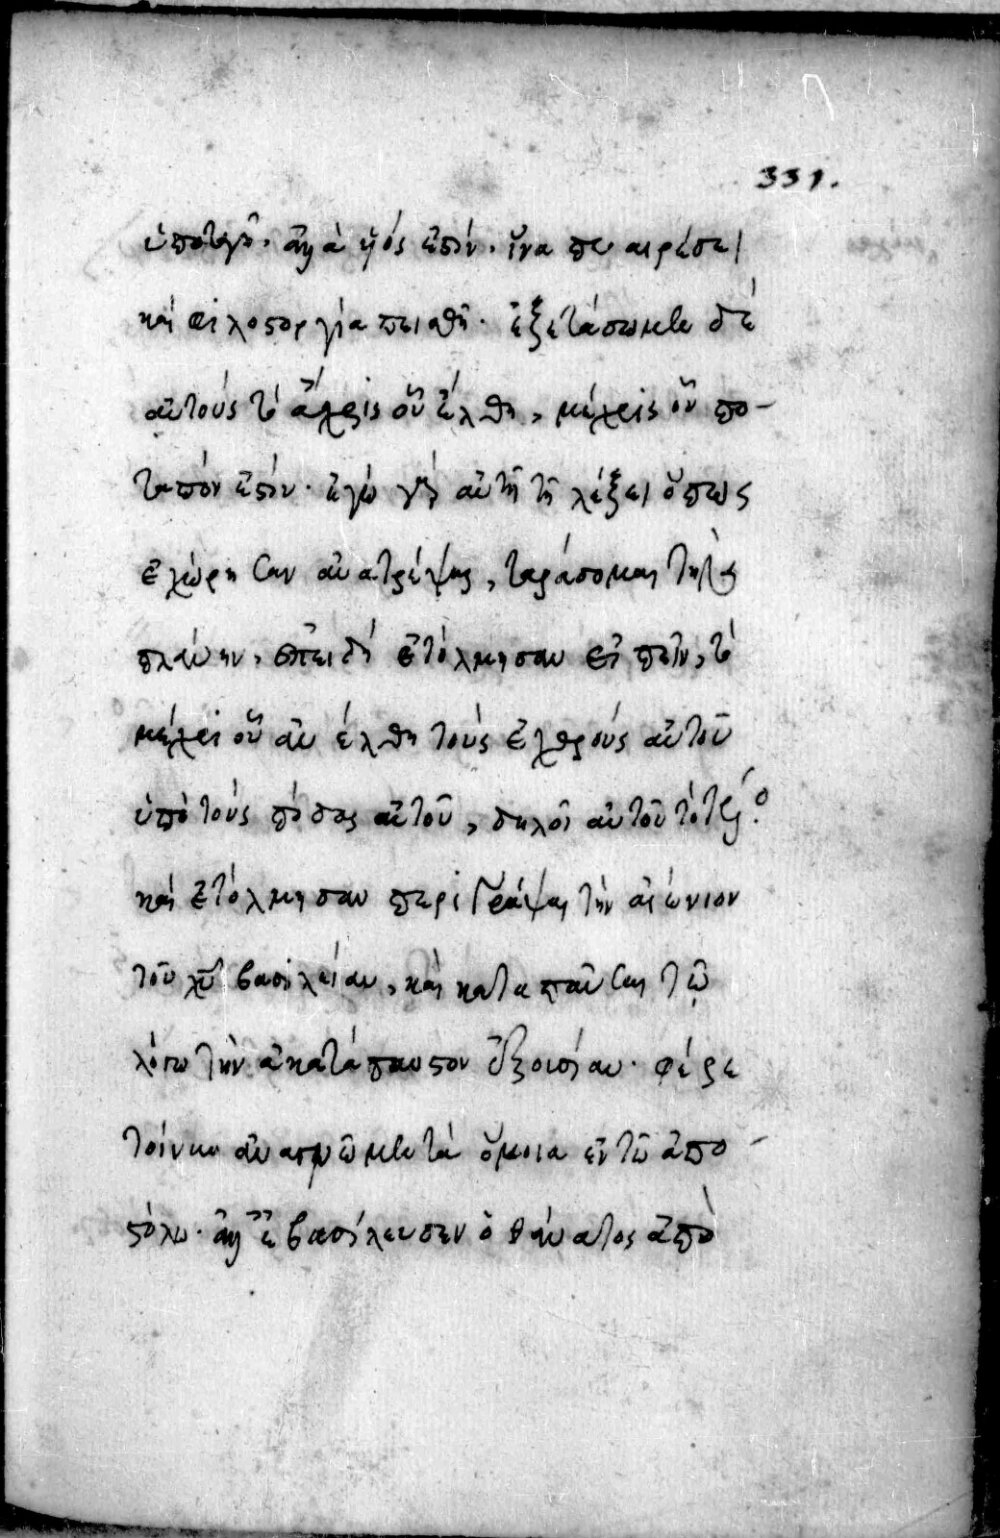 331.
ὑποταγῆ. ἀλλὰ υἱός ἐστιν. ἵνα προαιρέσει
καὶ φιλοστοργία πεισθῇ. ἐξετάσωμεν δὲ
αὐτοὺς τὸ ἄχρις οὗ ἔλθῃ, μέχρις οὗ πο-
ταπόν ἐστιν. ἐγὼ γὰρ αὐτῇ τῇ λέξει ὅπως
ἐχώρησαν ἀνατρέψαι, ταράσσομαι τὴν
πλάνην, ἐπειδὴ ἐτόλμησαν εἰπεῖν, τὸ
μέχρι οὗ ἂν ἔλθῃ τοὺς ἐχθροὺς αὐτοῦ
ὑπὸ τοὺς πόδας αὐτοῦ, δηλοῖ αὐτοῦ τὸ
καὶ ἐτόλμησαν περιγράψαι τὴν αἰώνιον
τοῦ χυ βασιλείαν, καὶ καταπαῦσαι τῷ
λόγω τὴν ἀκατάπαυστον ἐξουσίαν. φέρε
τοίνυν ἀναγνῶμεν τὰ ὅμοια ἐν τῶ ἀπο-
στόλω. ἀλλ' ἐβασίλευσεν ὁ θάνατος ἀπὸ